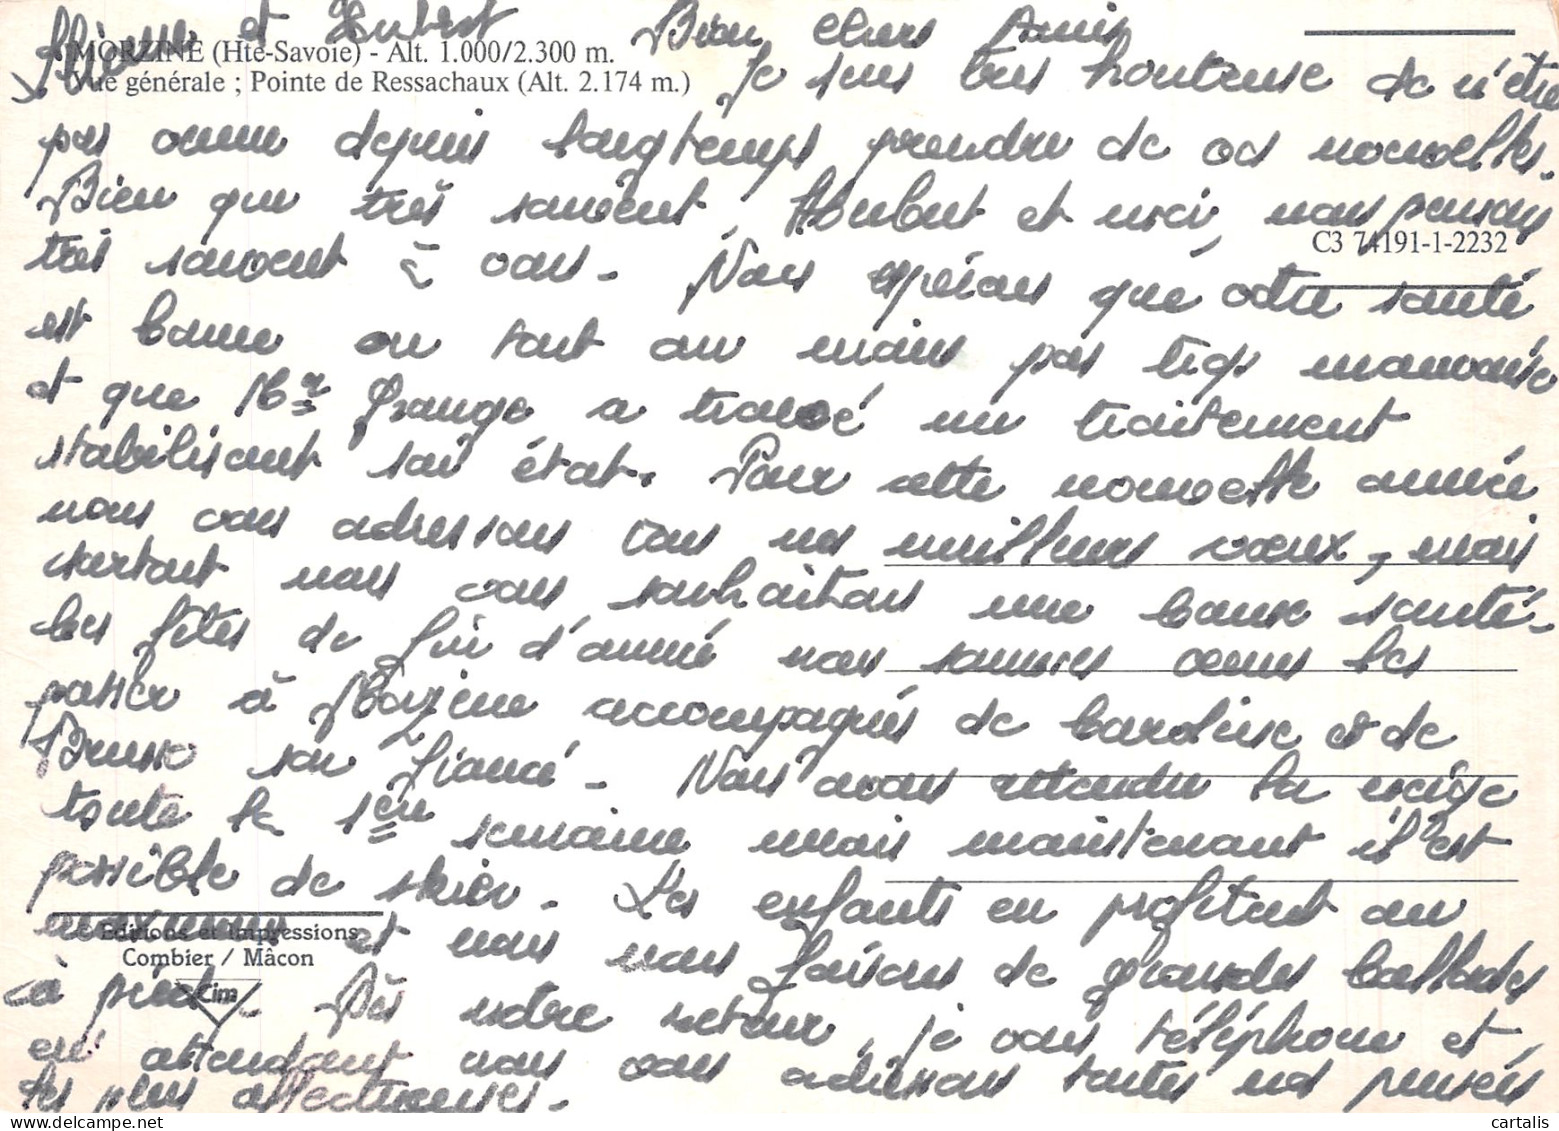 et Hubert Bien chers Amis
MORZINE (Hte-Savoie) - Alt. 1.000/2.300 m.
Vue générale ; Pointe de Ressachaux (Alt. 2.174 m.)
Je suis très honteuse de n'être
pas venue depuis longtemps prendre de vos nouvelles.
Bien que très souvent, Hubert et moi, nous pensons
C3 74191-1-2232
très souvent à vous. Nous espérons que votre santé
est bonne ou tout au moins pas trop mauvaise
et que Mr Grange a trouvé un traitement
stabilisant son état. Pour cette nouvelle année
nous vous adressons tous nos meilleurs vœux, mais
surtout nous vous souhaitons une bonne santé.
Les fêtes de fin d'année nous sommes venus les
passer à Morzine accompagnés de Caroline et de
Bruno son fiancé. Nous avons attendu la neige
toute la 1ère semaine mais maintenant il est
possible de skier. Les enfants en profitent au
maximum et nous nous faisons de grandes ballades
Editions et Impressions
Combier / Mâcon
Cim
à pied. Dès notre retour, je vous téléphone et
en attendant nous vous adressons toutes nos pensées
les plus affectueuses.
cartalis